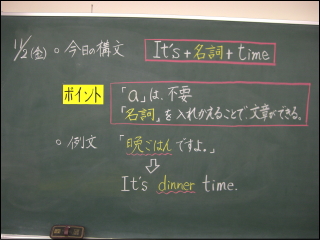 11/2(金) ○ 今日の構文 It's+名詞+time
ポイント 「a」は、不要
「名詞」を入れかえることで、文章ができる。
○ 例文 「晩ごはんですよ。」
It's dinner time.